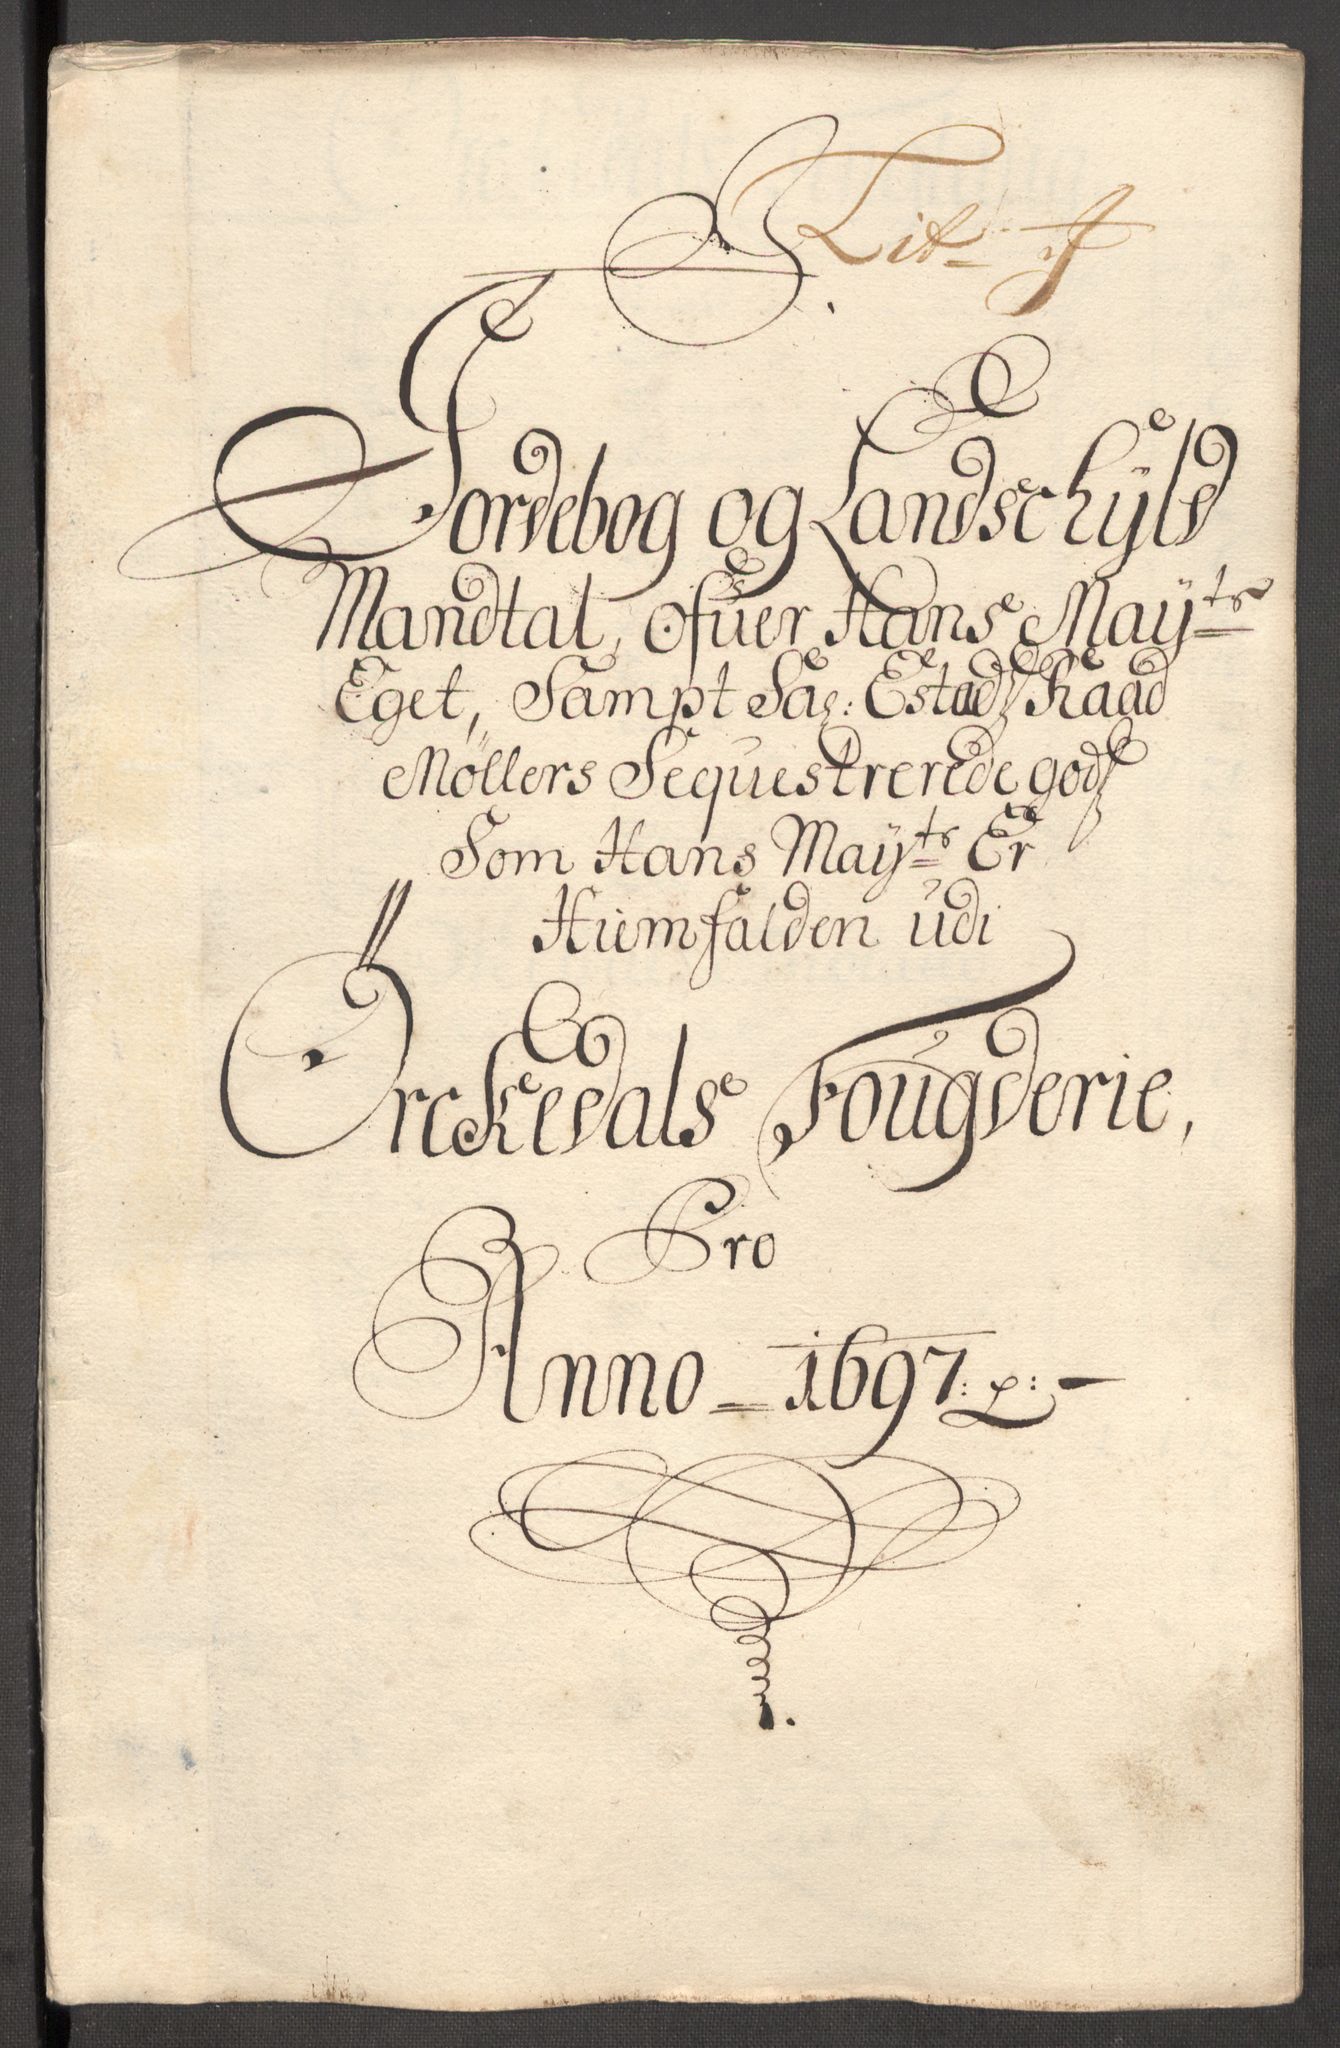 Lit: A
Jordebog og Landschyld
Mandtal, ofuer Hans Mayts
Eget, Sampt Sag: Estadz Raad
Möllers Sequestrerede godz
Som Hans Mayts Er
Hiemfalden udi
Orckedals Fougderie,
Pro
Anno = 1697: p: